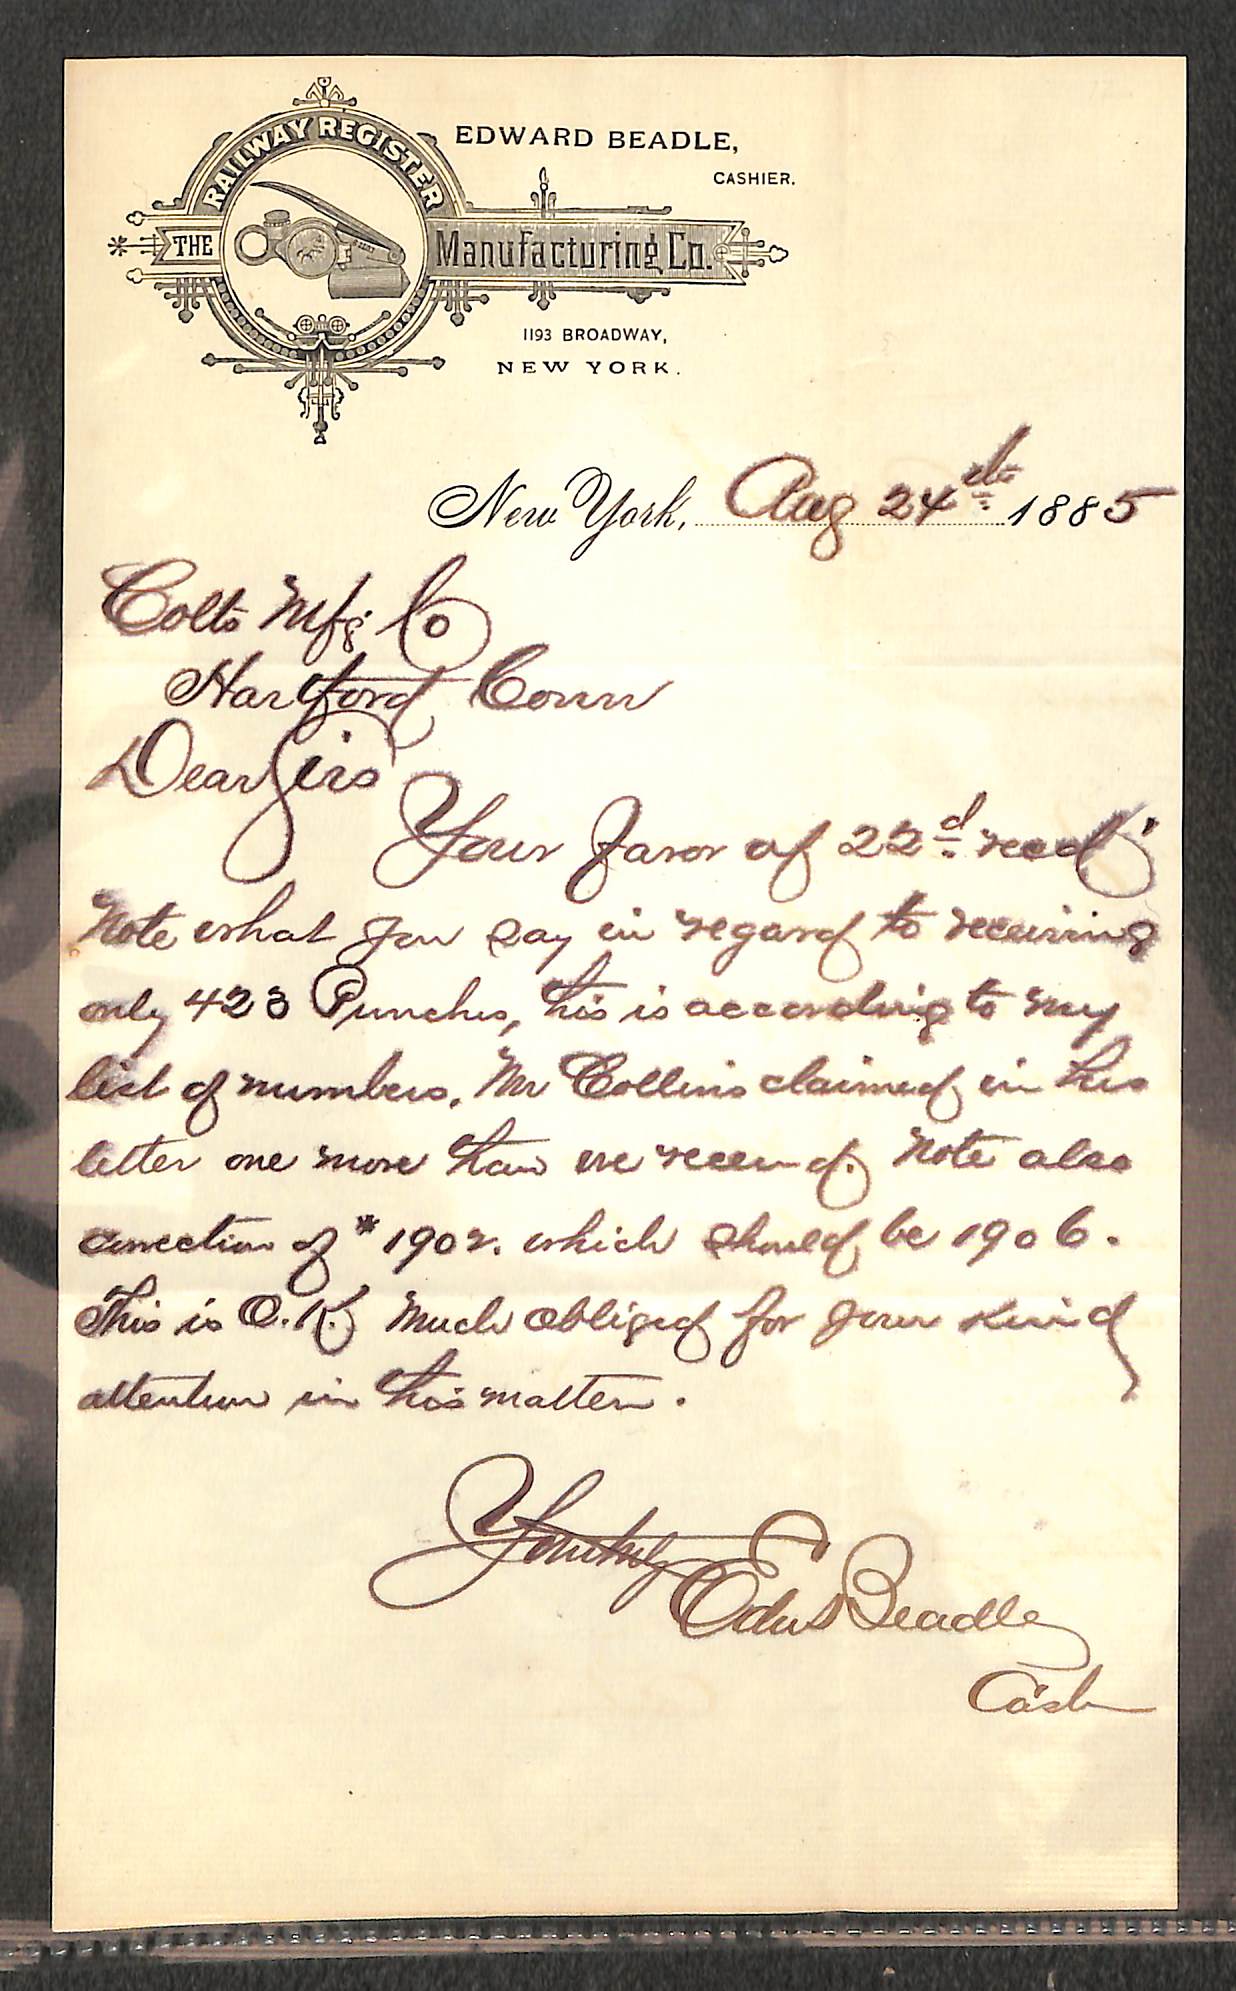 RAILWAY REGISTER
THE Manufacturing Co.
EDWARD BEADLE,
CASHIER.
1193 BROADWAY,
NEW YORK.
New York, Aug 24th 1885
Colts Mfg Co
Hartford Conn
Dear Sirs
Your favor of 22d recd.
Note what you say in regard to receiving
only 423 Punches, this is according to my
list of numbers. Mr Collins claimed in his
letter one more than we received. Note also
correction of # 1902. which should be 1906.
This is O.K. Much obliged for your kind
attention in this matter.
Yours truly
Edwd Beadle
Cash